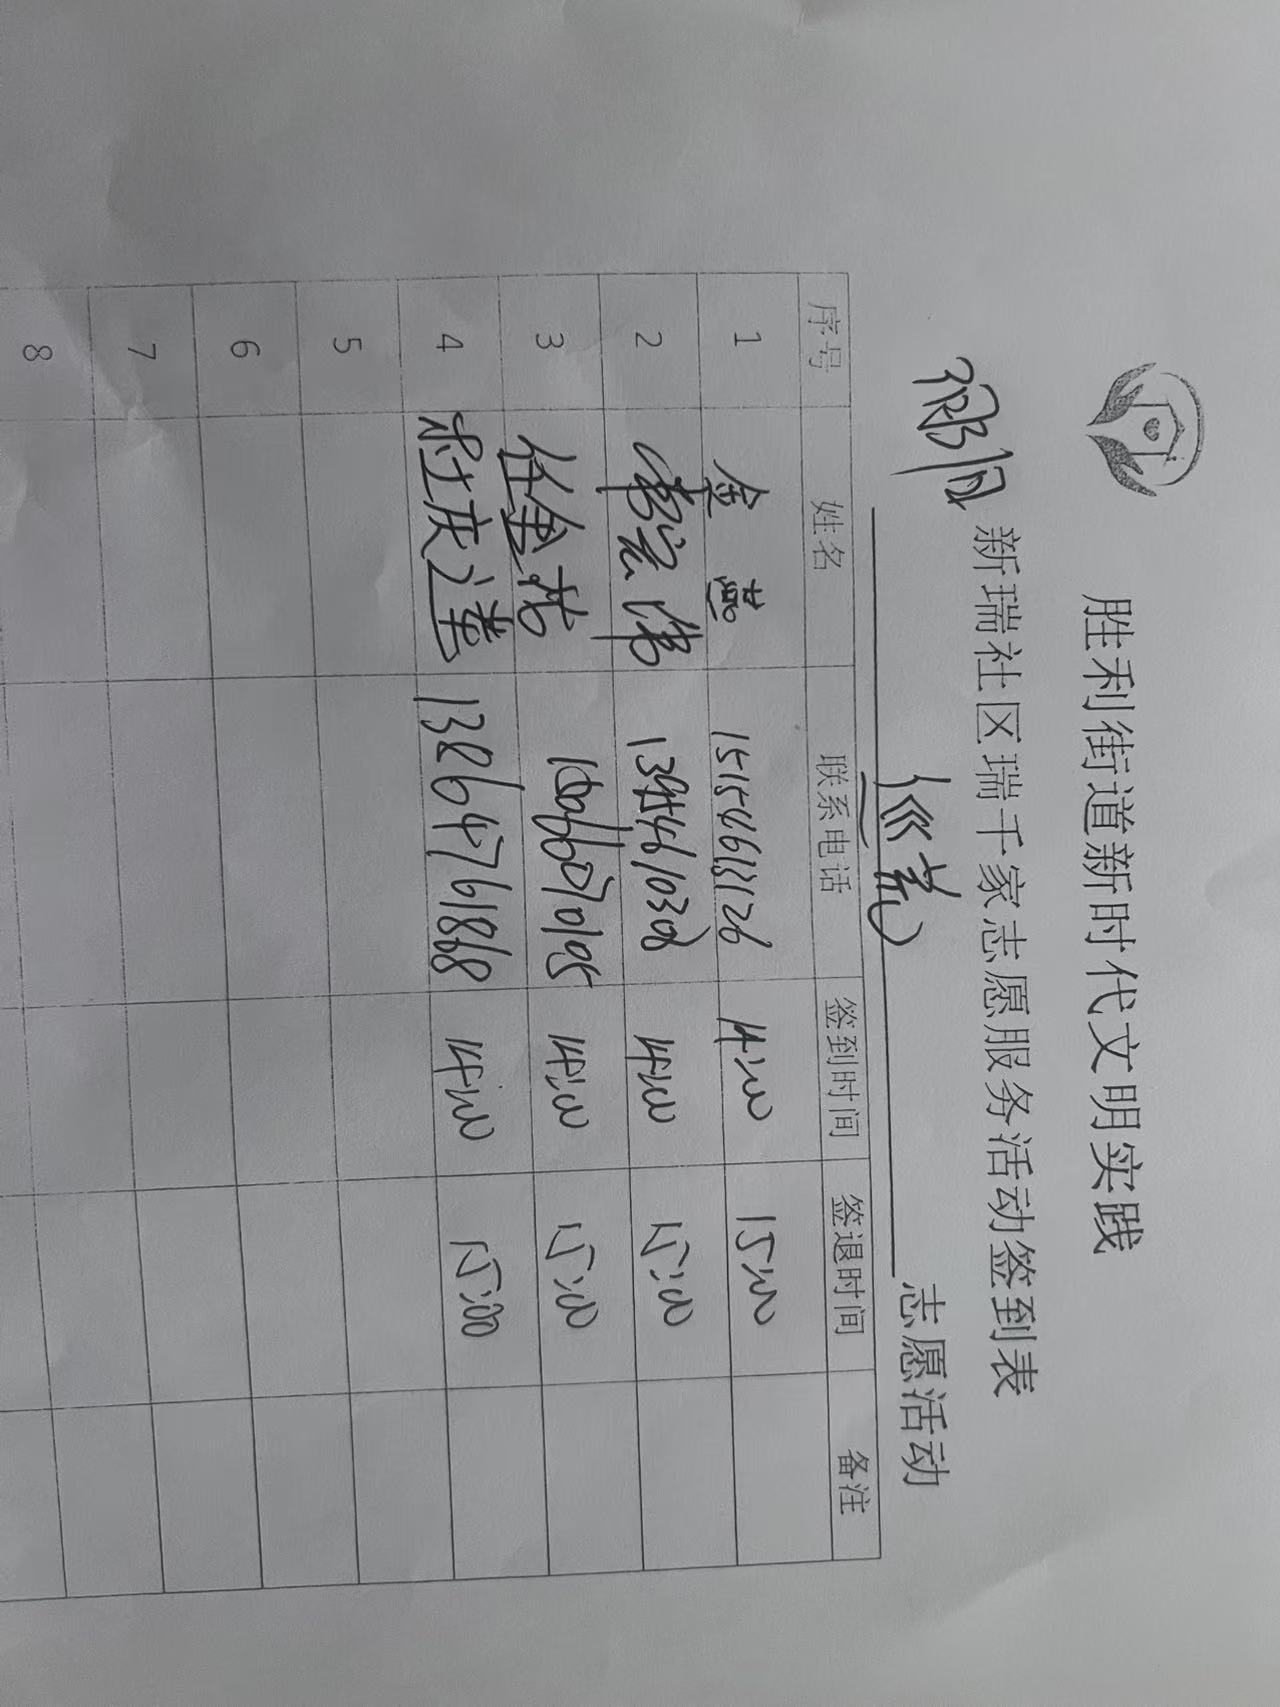 胜利街道新时代文明实践
新瑞社区瑞千家志愿服务活动签到表
志愿活动
序号 姓名 联系电话 签到时间 签退时间 备注
1 金燕 14:00 15:00
2 宏伟 13954610308 14:00 15:00
3 任金 14:00 15:00
4 13864761868 14:00 15:00
5
6
7
8